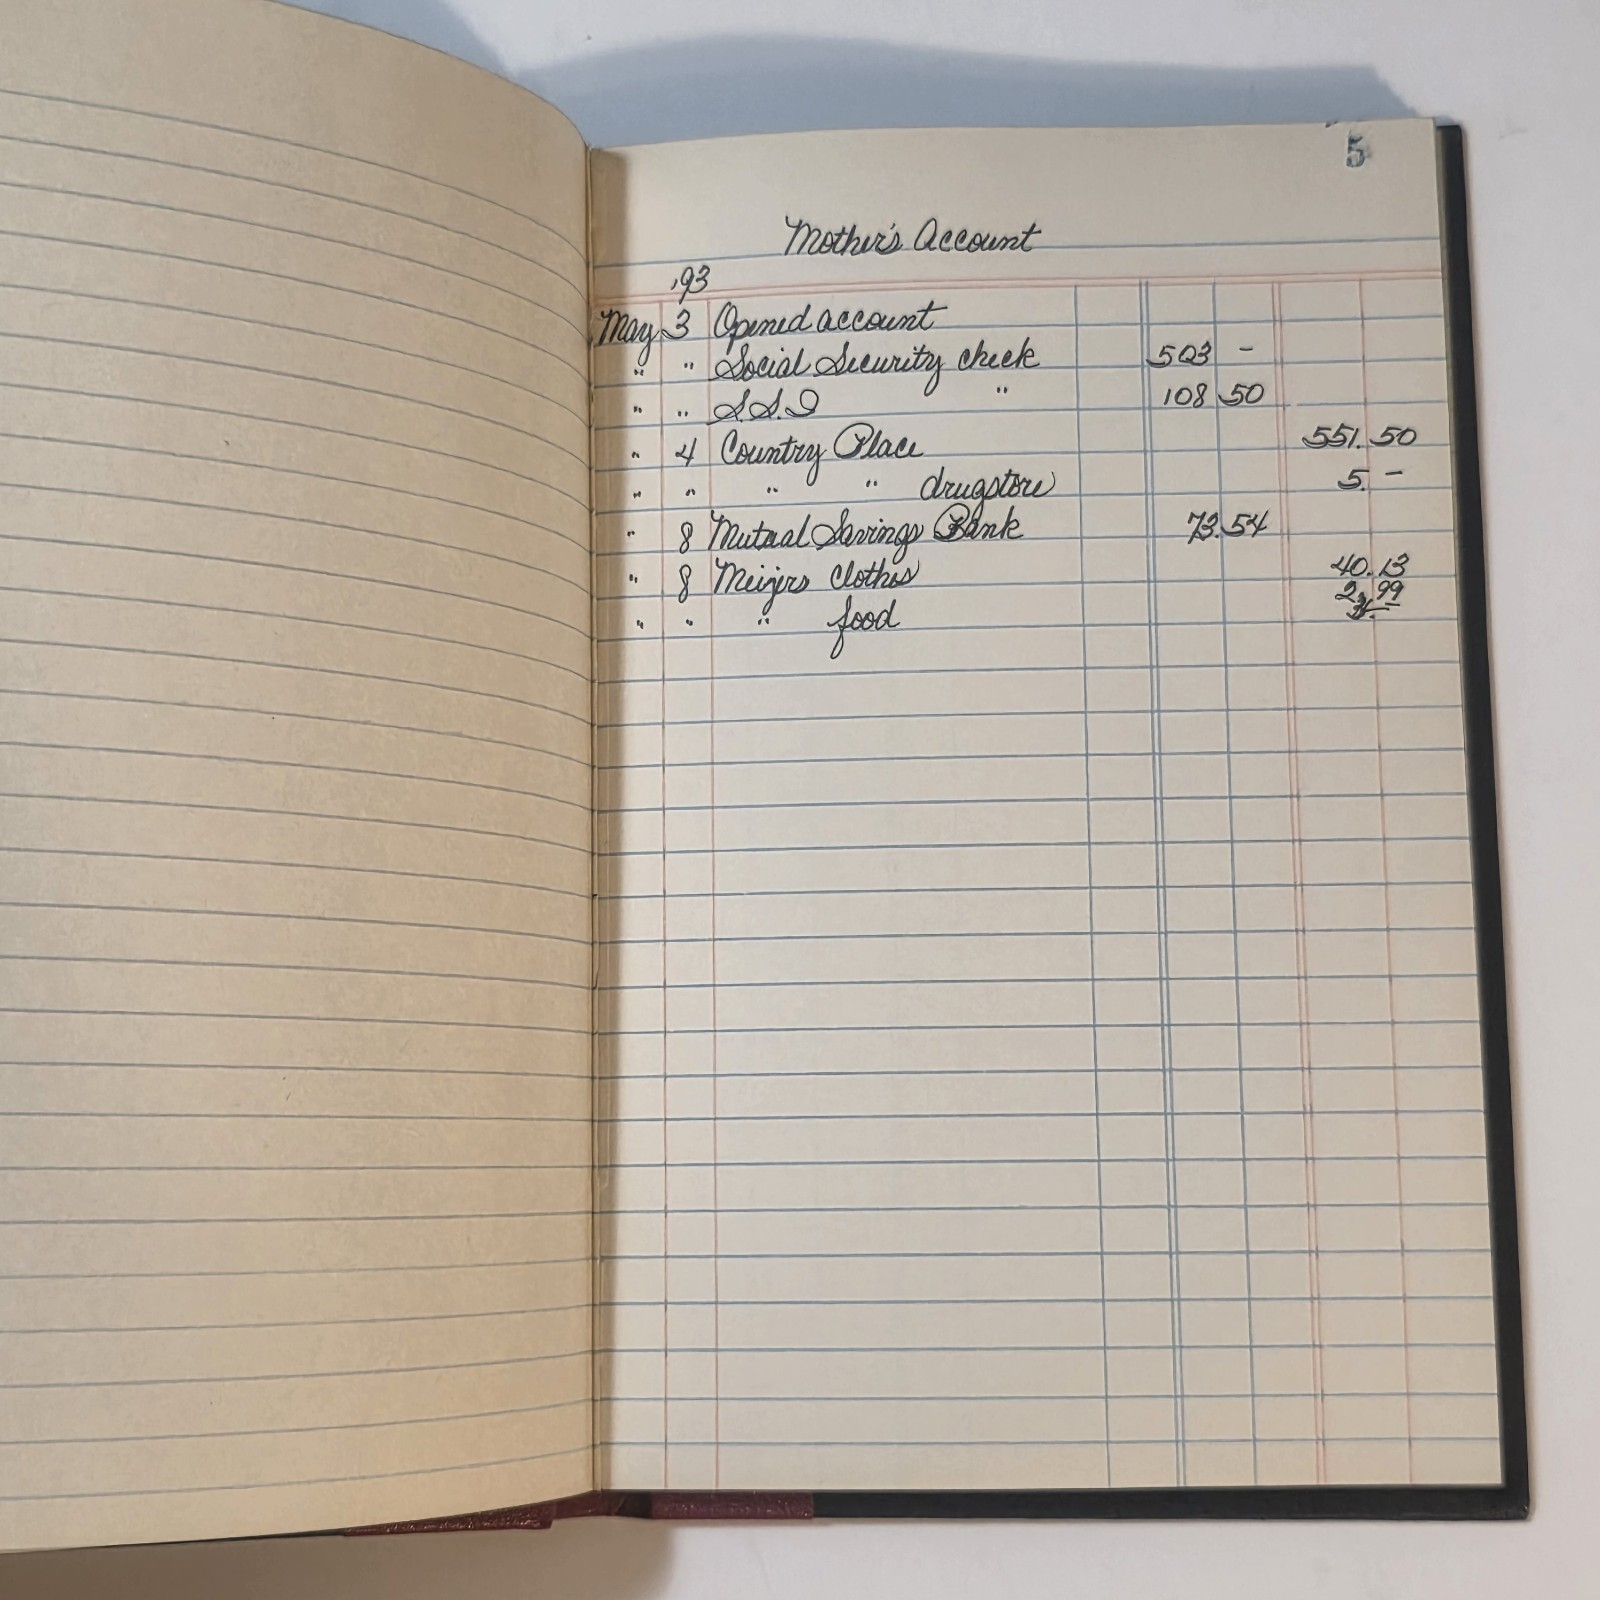 5
Mother's Account
'93
May 3 Opened account
" " Social Security check 503 -
" " S.S.I " 108 50
" 4 Country Place 551.50
" " " " drugstore 5. -
" 8 Mutual Savings Bank 73.54
" 8 Meijers clothes 40.13
" " " food 2.99